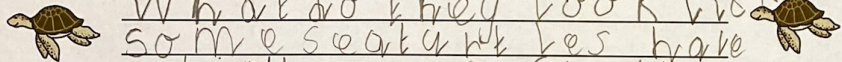 What do they look lic
some seaturt les have